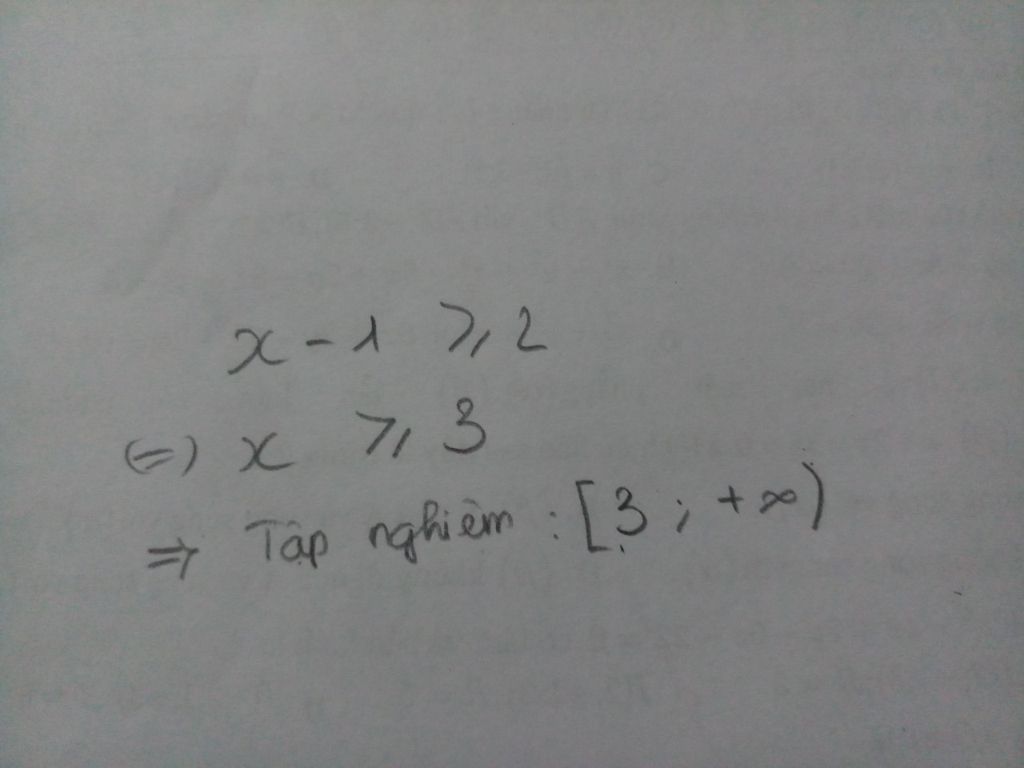 x - 1 ⩾ 2
(=) x ⩾ 3
⇒ Tập nghiệm : [3 ; +∞)